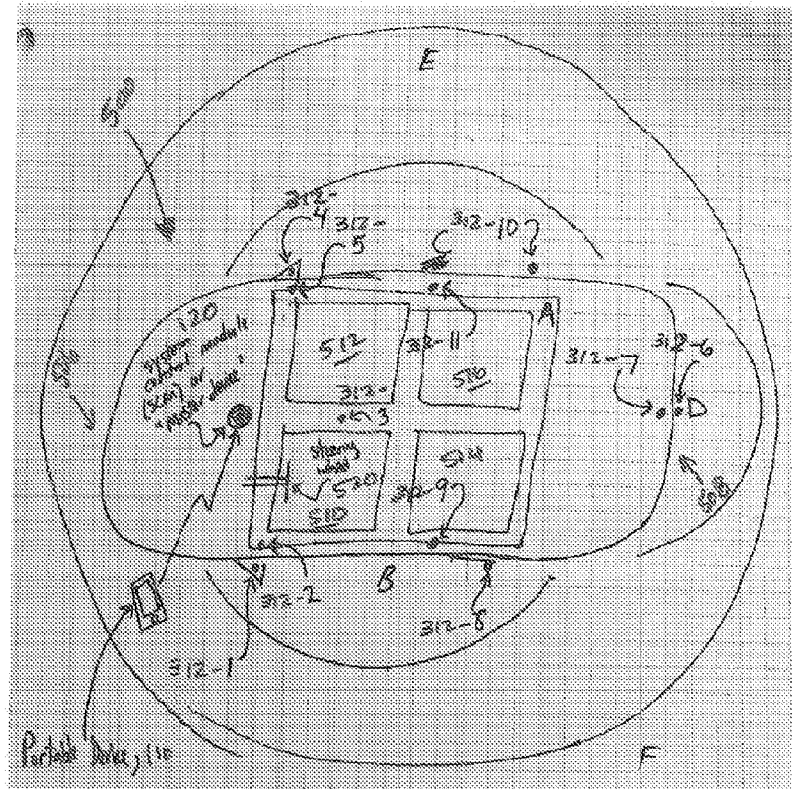 E
500
312-
4
312-
5
312-10
120
system
control module
(SCM) or
"master device"
A
512
312-11
516
312-7
312-6
D
312-
3
steering
wheel
520
510
514
312-9
508
B
312-2
312-8
312-1
F
Portable Device, 110